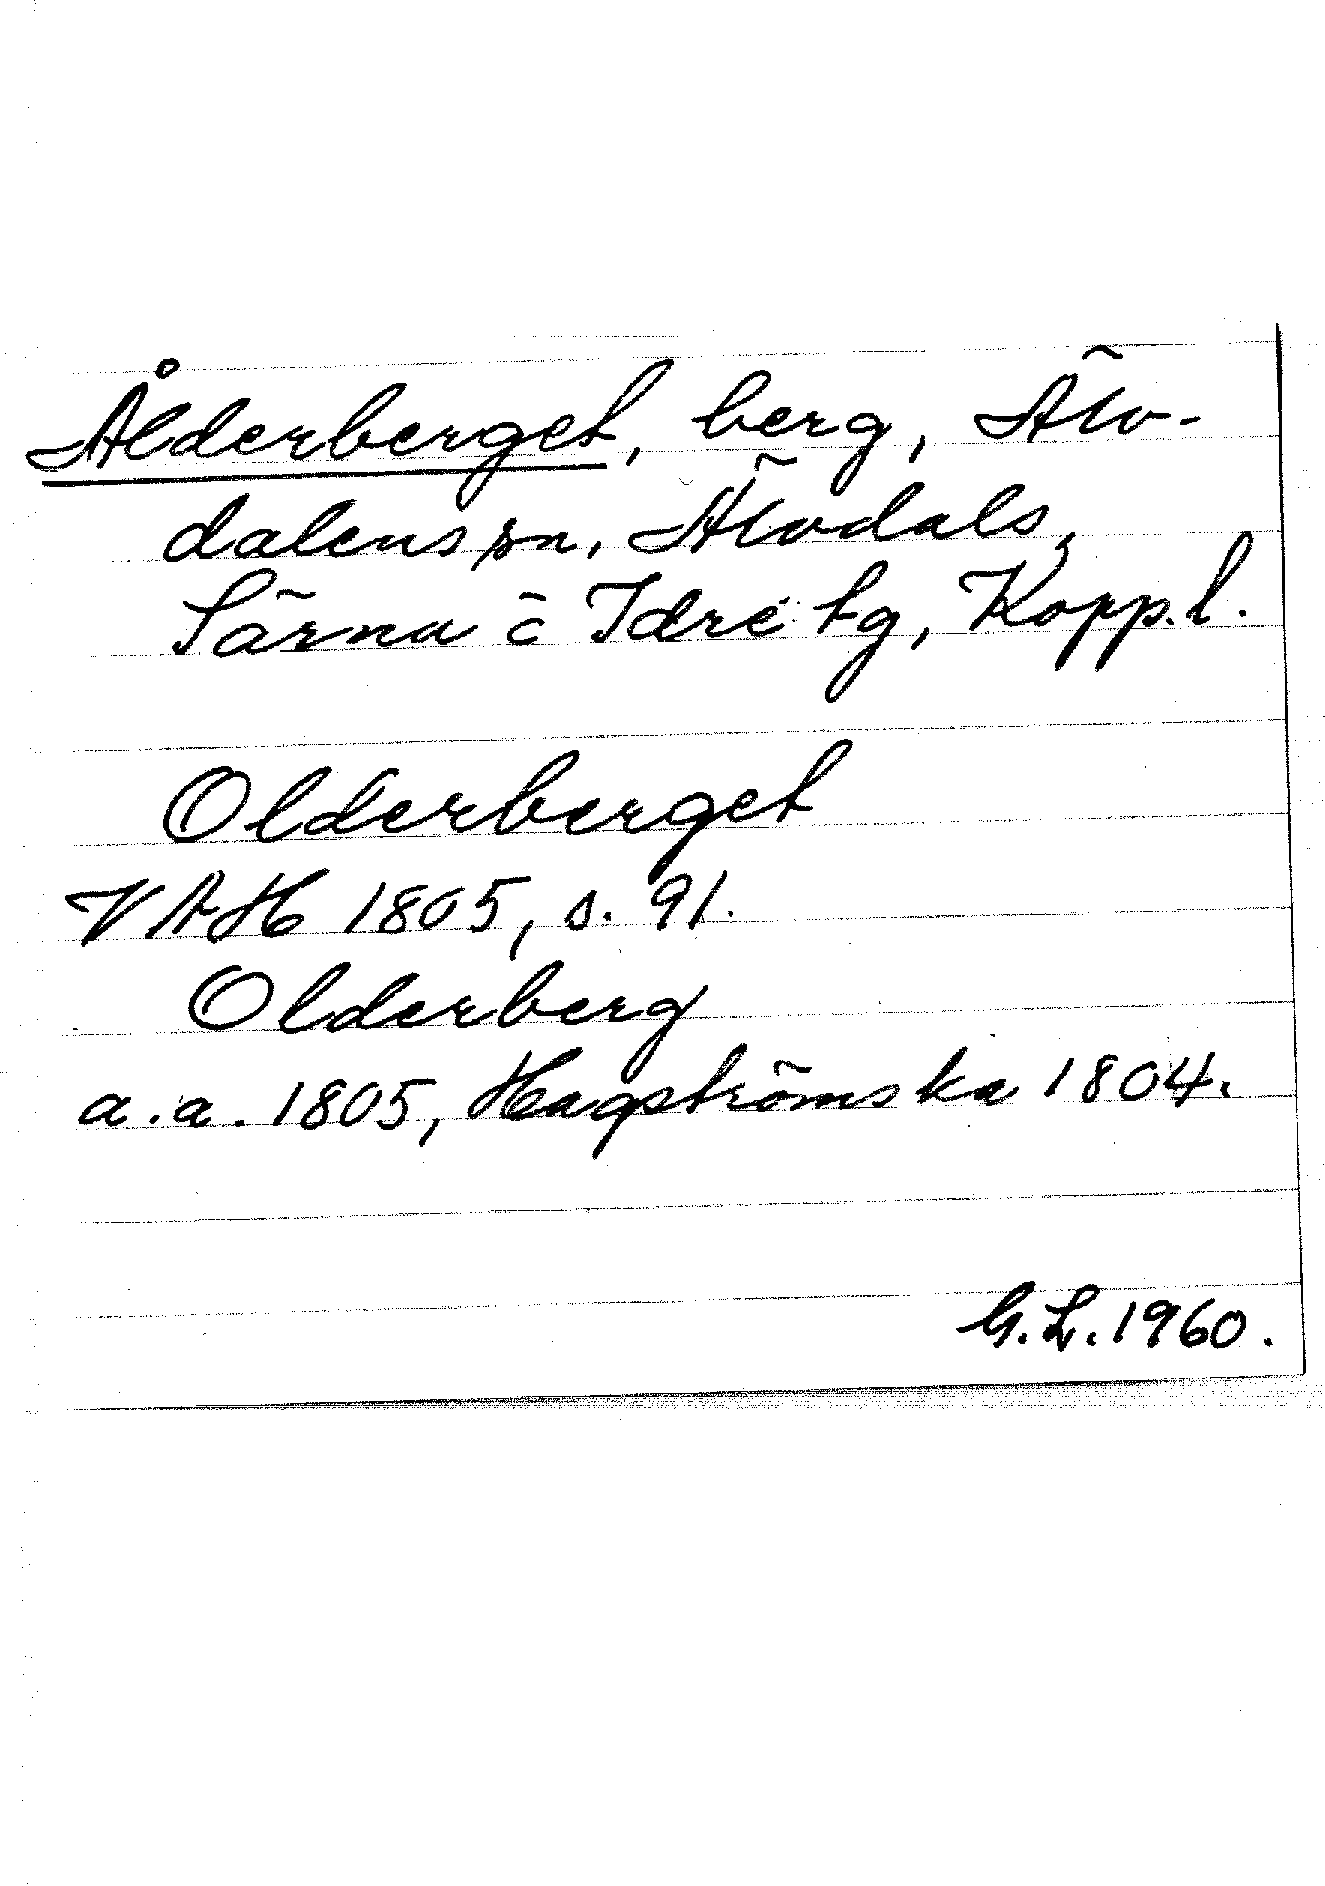 Ålderberget, berg, Älv-
dalens sn, Älvdals,
Särna o Idre tg, Kopp. l.
Olderberget
VAH 1805, s. 91.
Olderberg
a. a. 1805, Hagströmska 1804.
G. L. 1960.